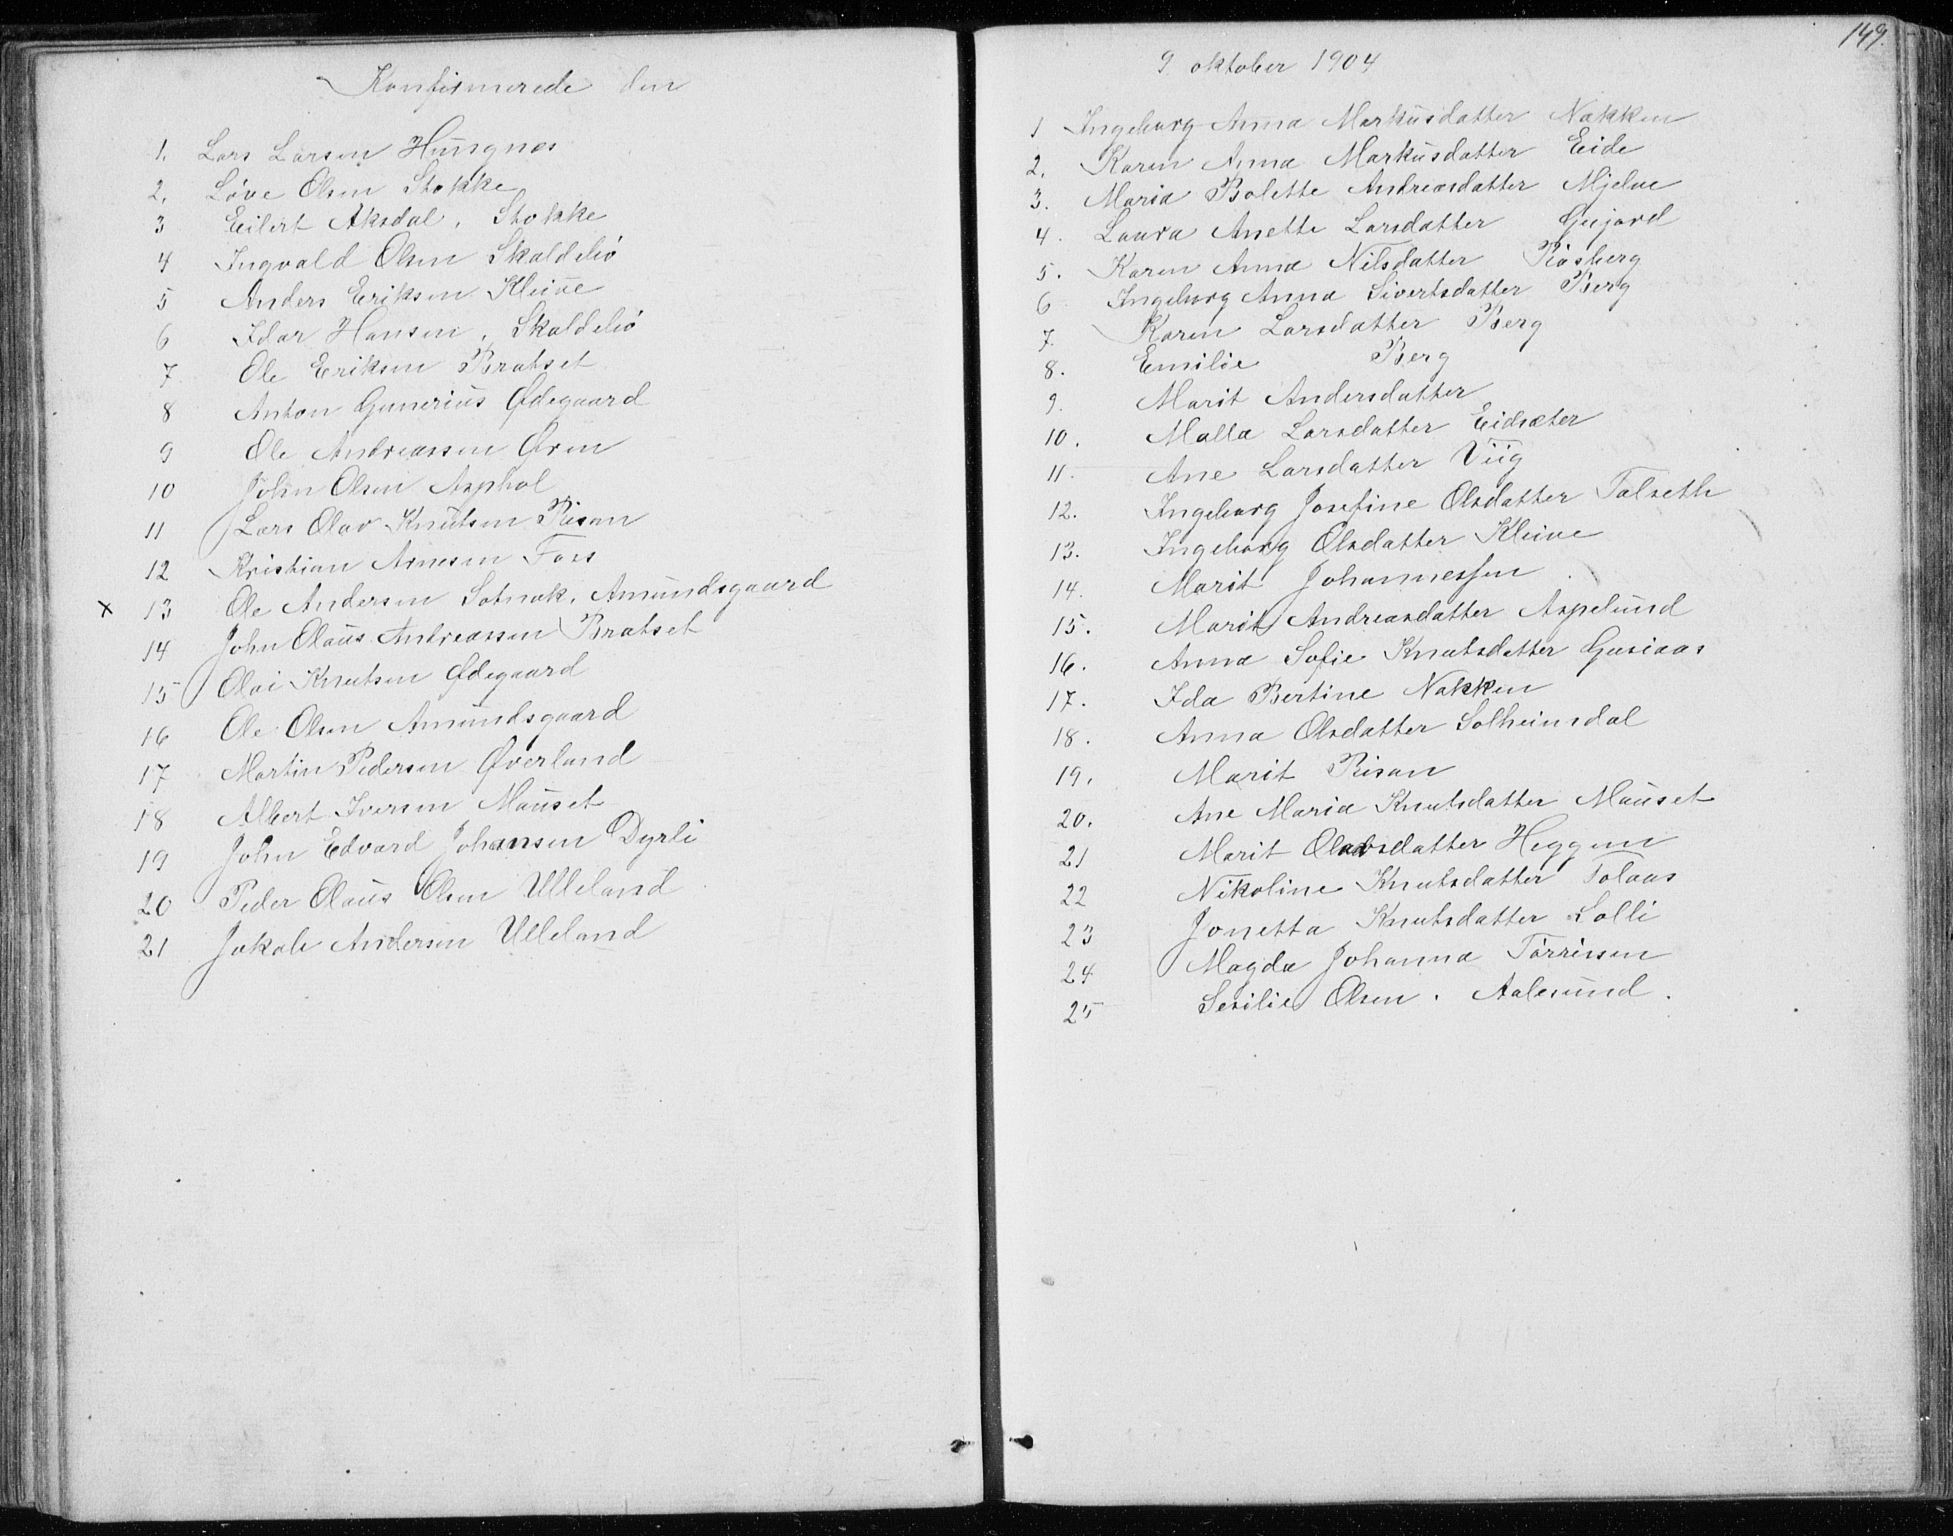 Konfirmerede den
1. Lars Larsen Hungnes
2. Løve Olsen Stokke
3 Eilert Aksdal, Stokke
4 Ingvald Olsen Skaldeliø
5 Anders Eriksen Kleive
6 Idar Hansen, Skaldeliø
7 Ole Eriksen Bratset
8 Anton Gunerius Ødegaard
9 Ole Andreassen Øren
10 John Olsen Asphol
11 Lars Olav Knutsen Risan
12 Kristian Arnesen Foss
x 13 Ole Andersen Sotnak, Amundsgaard
14 John Olaus Andreassen Bratset
15 Olai Knutsen Ødegaard
16 Ole Olsen Amundsgaard
17 Martin Pedersen Øverland
18 Albert Iversen Mauset
19 John Edvard Johansen Dyrli
20 Peder Olaus Olsen Ulleland
21 Jakob Andersen Ulleland
149.
9. oktober 1904
1 Ingeborg Anna Markusdatter Nakken
2. Karen Anna Markusdatter Eide
3. Maria Bolette Andreasdatter Mjelve
4. Laura Anette Larsdatter
5. Karen Anna Nilsdatter Røsberg
6 Ingeborg Anna Sivertsdatter Berg
7. Karen Larsdatter Berg
8. Emilie Berg
9. Marit Andersdatter
10. Malla Larsdatter Eidsæter
11. Ane Larsdatter Viig
12. Ingeborg Josefine Olsdatter Talseth
13. Ingeborg Olsdatter Kleive
14. Marit Johannessen
15. Marit Andreasdatter Aspelund
16. Anna Sofie Knutsdatter Gusiaas
17. Ida Bertine Nakken
18. Anna Olsdatter Solheimsdal
19. Marit Risan
20. Ane Maria Knutsdatter Mauset
21 Marit Olavsdatter Heggem
22 Nikoline Knutsdatter Tolaas
23 Jonetta Knutsdatter Solli
24 Magda Johanna Tørrissen
25 Sesilie Olsen. Aalesund.